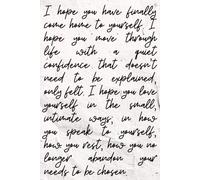 I hope you have finally
come home to yourself. I
hope you move through
life with a quiet
confidence that doesn't
need to be explained,
only felt. I hope you love
yourself in the small,
intimate ways, in how
you speak to yourself,
how you rest, how you no
longer abandon your
needs to be chosen.